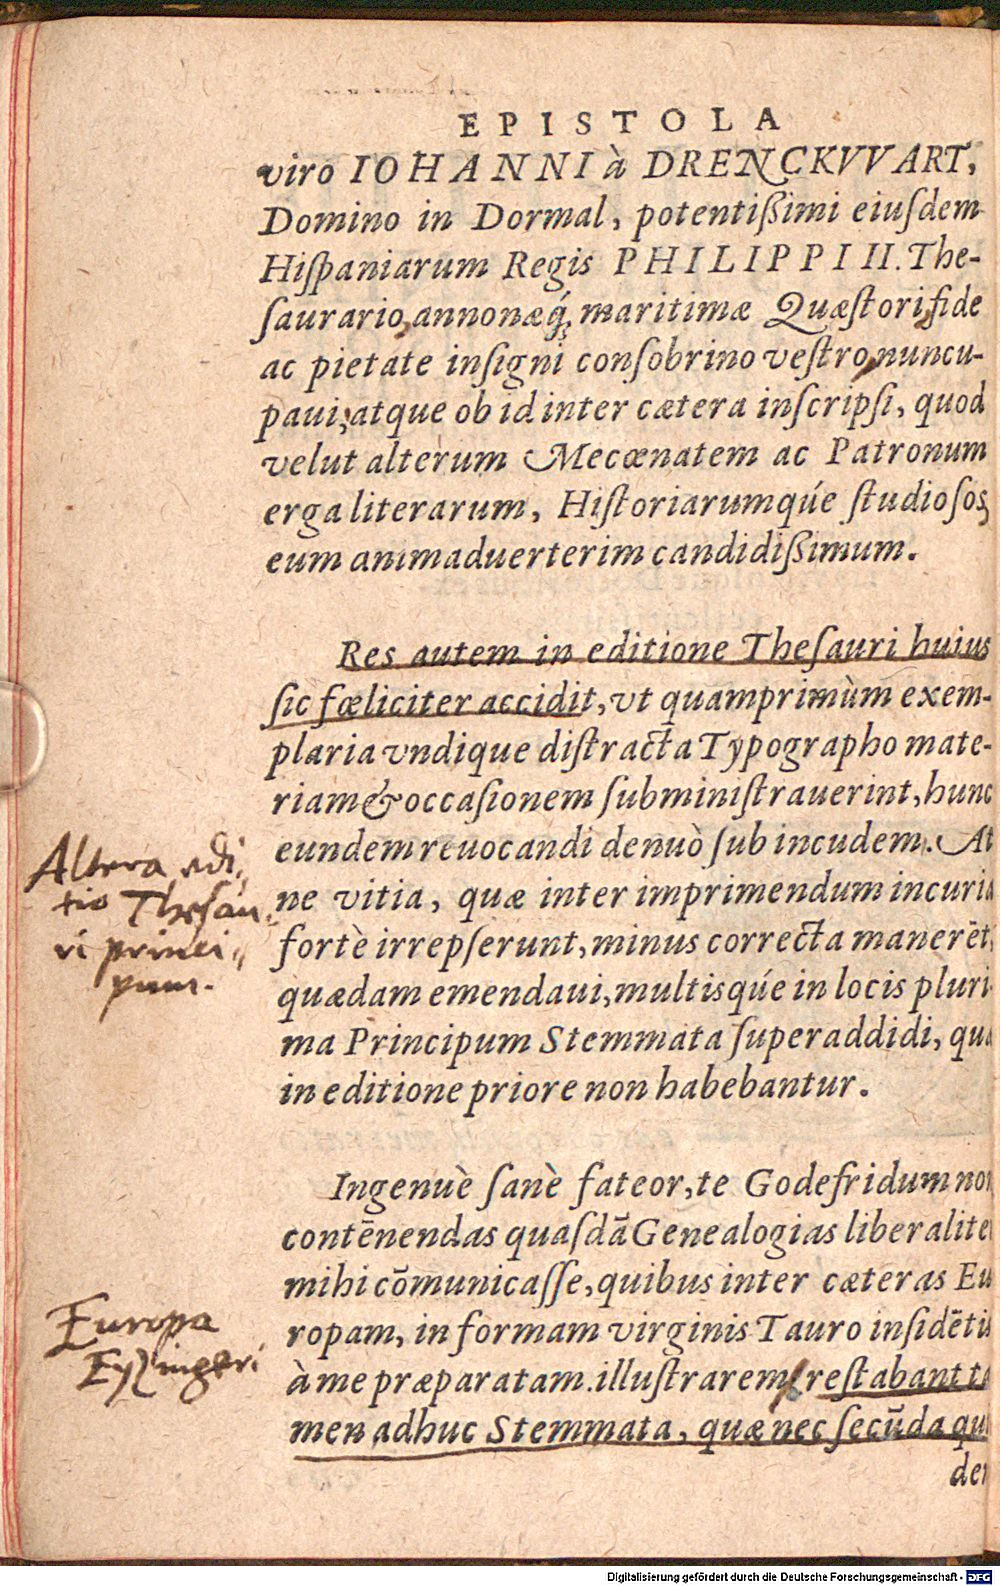 EPISTOLA
viro IOHANNI à DRENCKVVART,
Domino in Dormal, potentißimi eiuſdem
Hiſpaniarum Regis PHILIPPI II. The-
ſaurario, annonæq́; maritimæ Quæſtori, fide
ac pietate inſigni conſobrino veſtro, nuncu-
paui; atque ob id inter cætera inſcripſi, quod
velut alterum Mecœnatem ac Patronum
erga literarum, Hiſtoriarumqúe ſtudioſos,
eum animaduerterim candidißimum.
Res autem in editione Theſauri huius
ſic fœliciter accidit, vt quamprimùm exem-
plaria vndique diſtracta Typographo mate-
riam & occaſionem ſubminiſtrauerint, hunc
eundem reuocandi denuò ſub incudem. At
ne vitia, quæ inter imprimendum incuria
fortè irrepſerunt, minus correcta manerēt,
quædam emendaui, multisqúe in locis pluri
ma Principum Stemmata ſuperaddidi, quæ
in editione priore non habebantur.
Altera edi„
tio Theſau„
ri princi„
pum.
Ingenuè ſanè fateor, te Godefridum non
contēnendas quaſdā Genealogias liberalite
mihi cōmunicaſſe, quibus inter cæteras Eu
ropam, in formam virginis Tauro inſidētis
à me præparatam. illuſtrarem; reſtabant ta
men adhuc Stemmata, quæ nec ſecūda qui
der
Europa
Eyzingeri
Digitalisierung gefördert durch die Deutsche Forschungsgemeinschaft - DFG